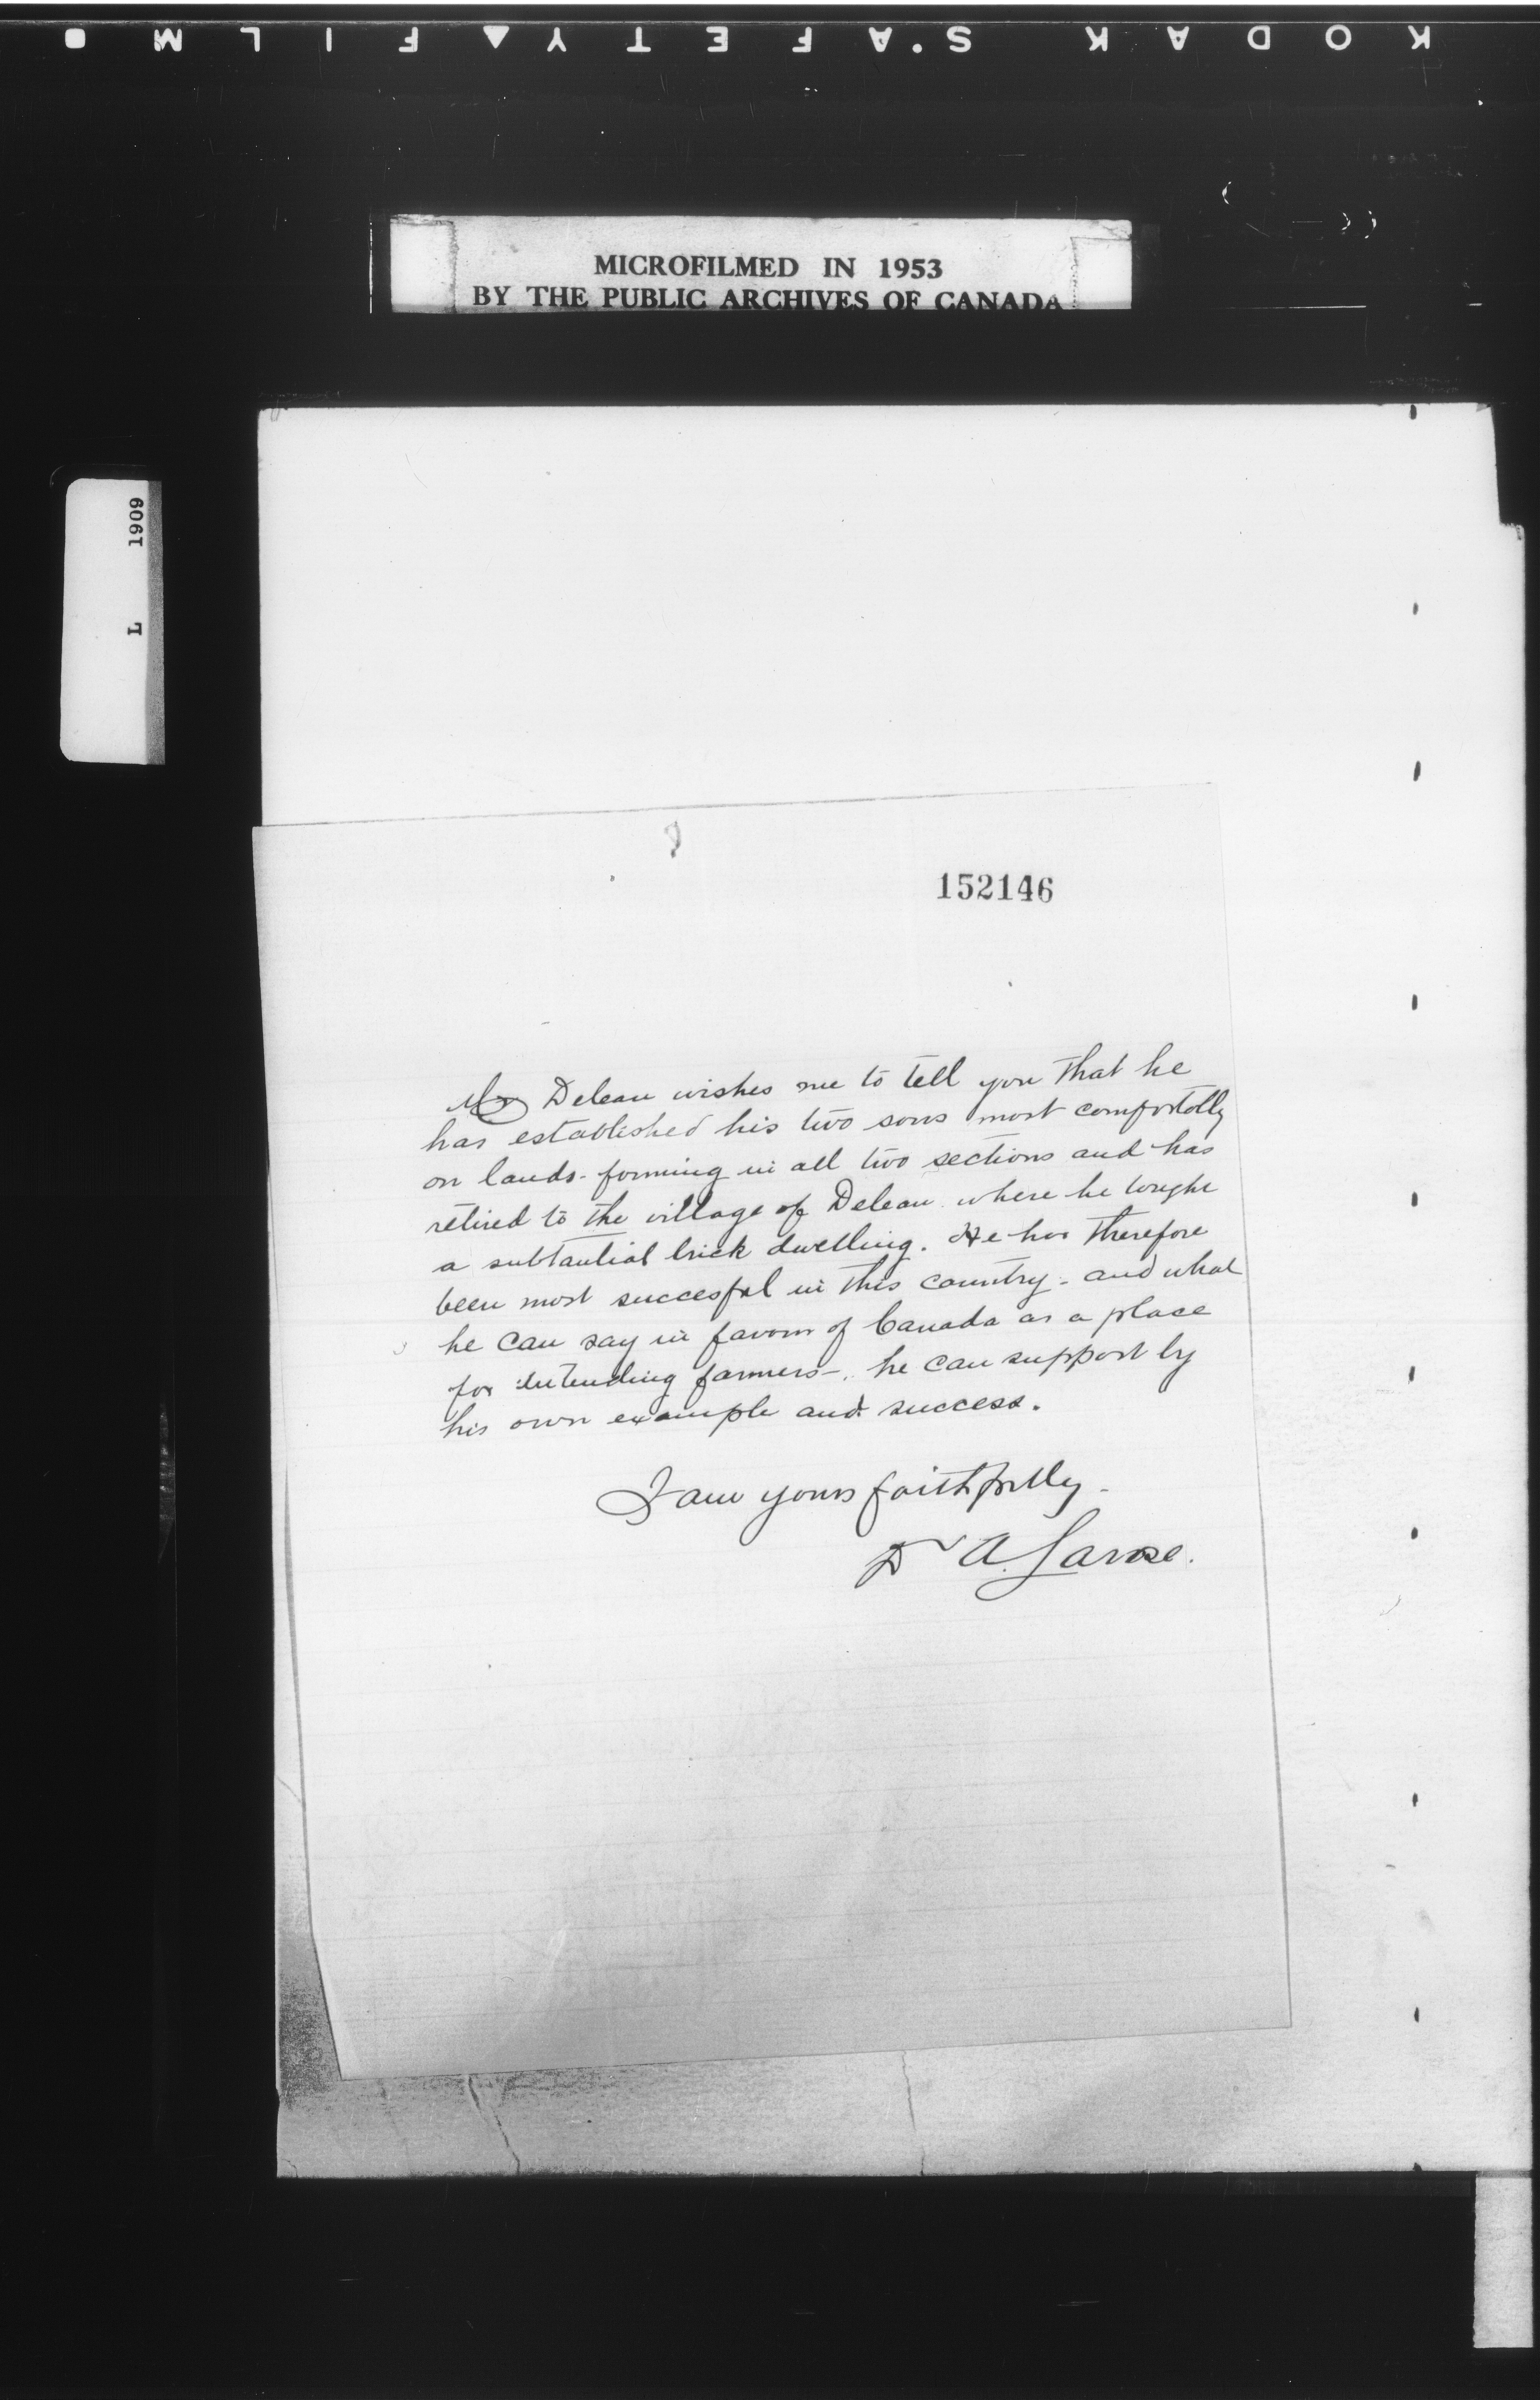 KODAK S'AFETY▲FILM■
MICROFILMED IN 1953
BY THE PUBLIC ARCHIVES OF CANADA
L 1909
152146
Mr Deleau wishes me to tell you that he
has established his two sons most comfortobly
on lands - forming in all two sections and has
retired to the village of Deleau where he bought
a subtantial brick dwelling. He has therefore
been most succesful in this country - and what
he can say in favour of Canada as a place
for intending farmers -, he can support by
his own example and success.
I am yours faithfully -
Dr A. Larose.